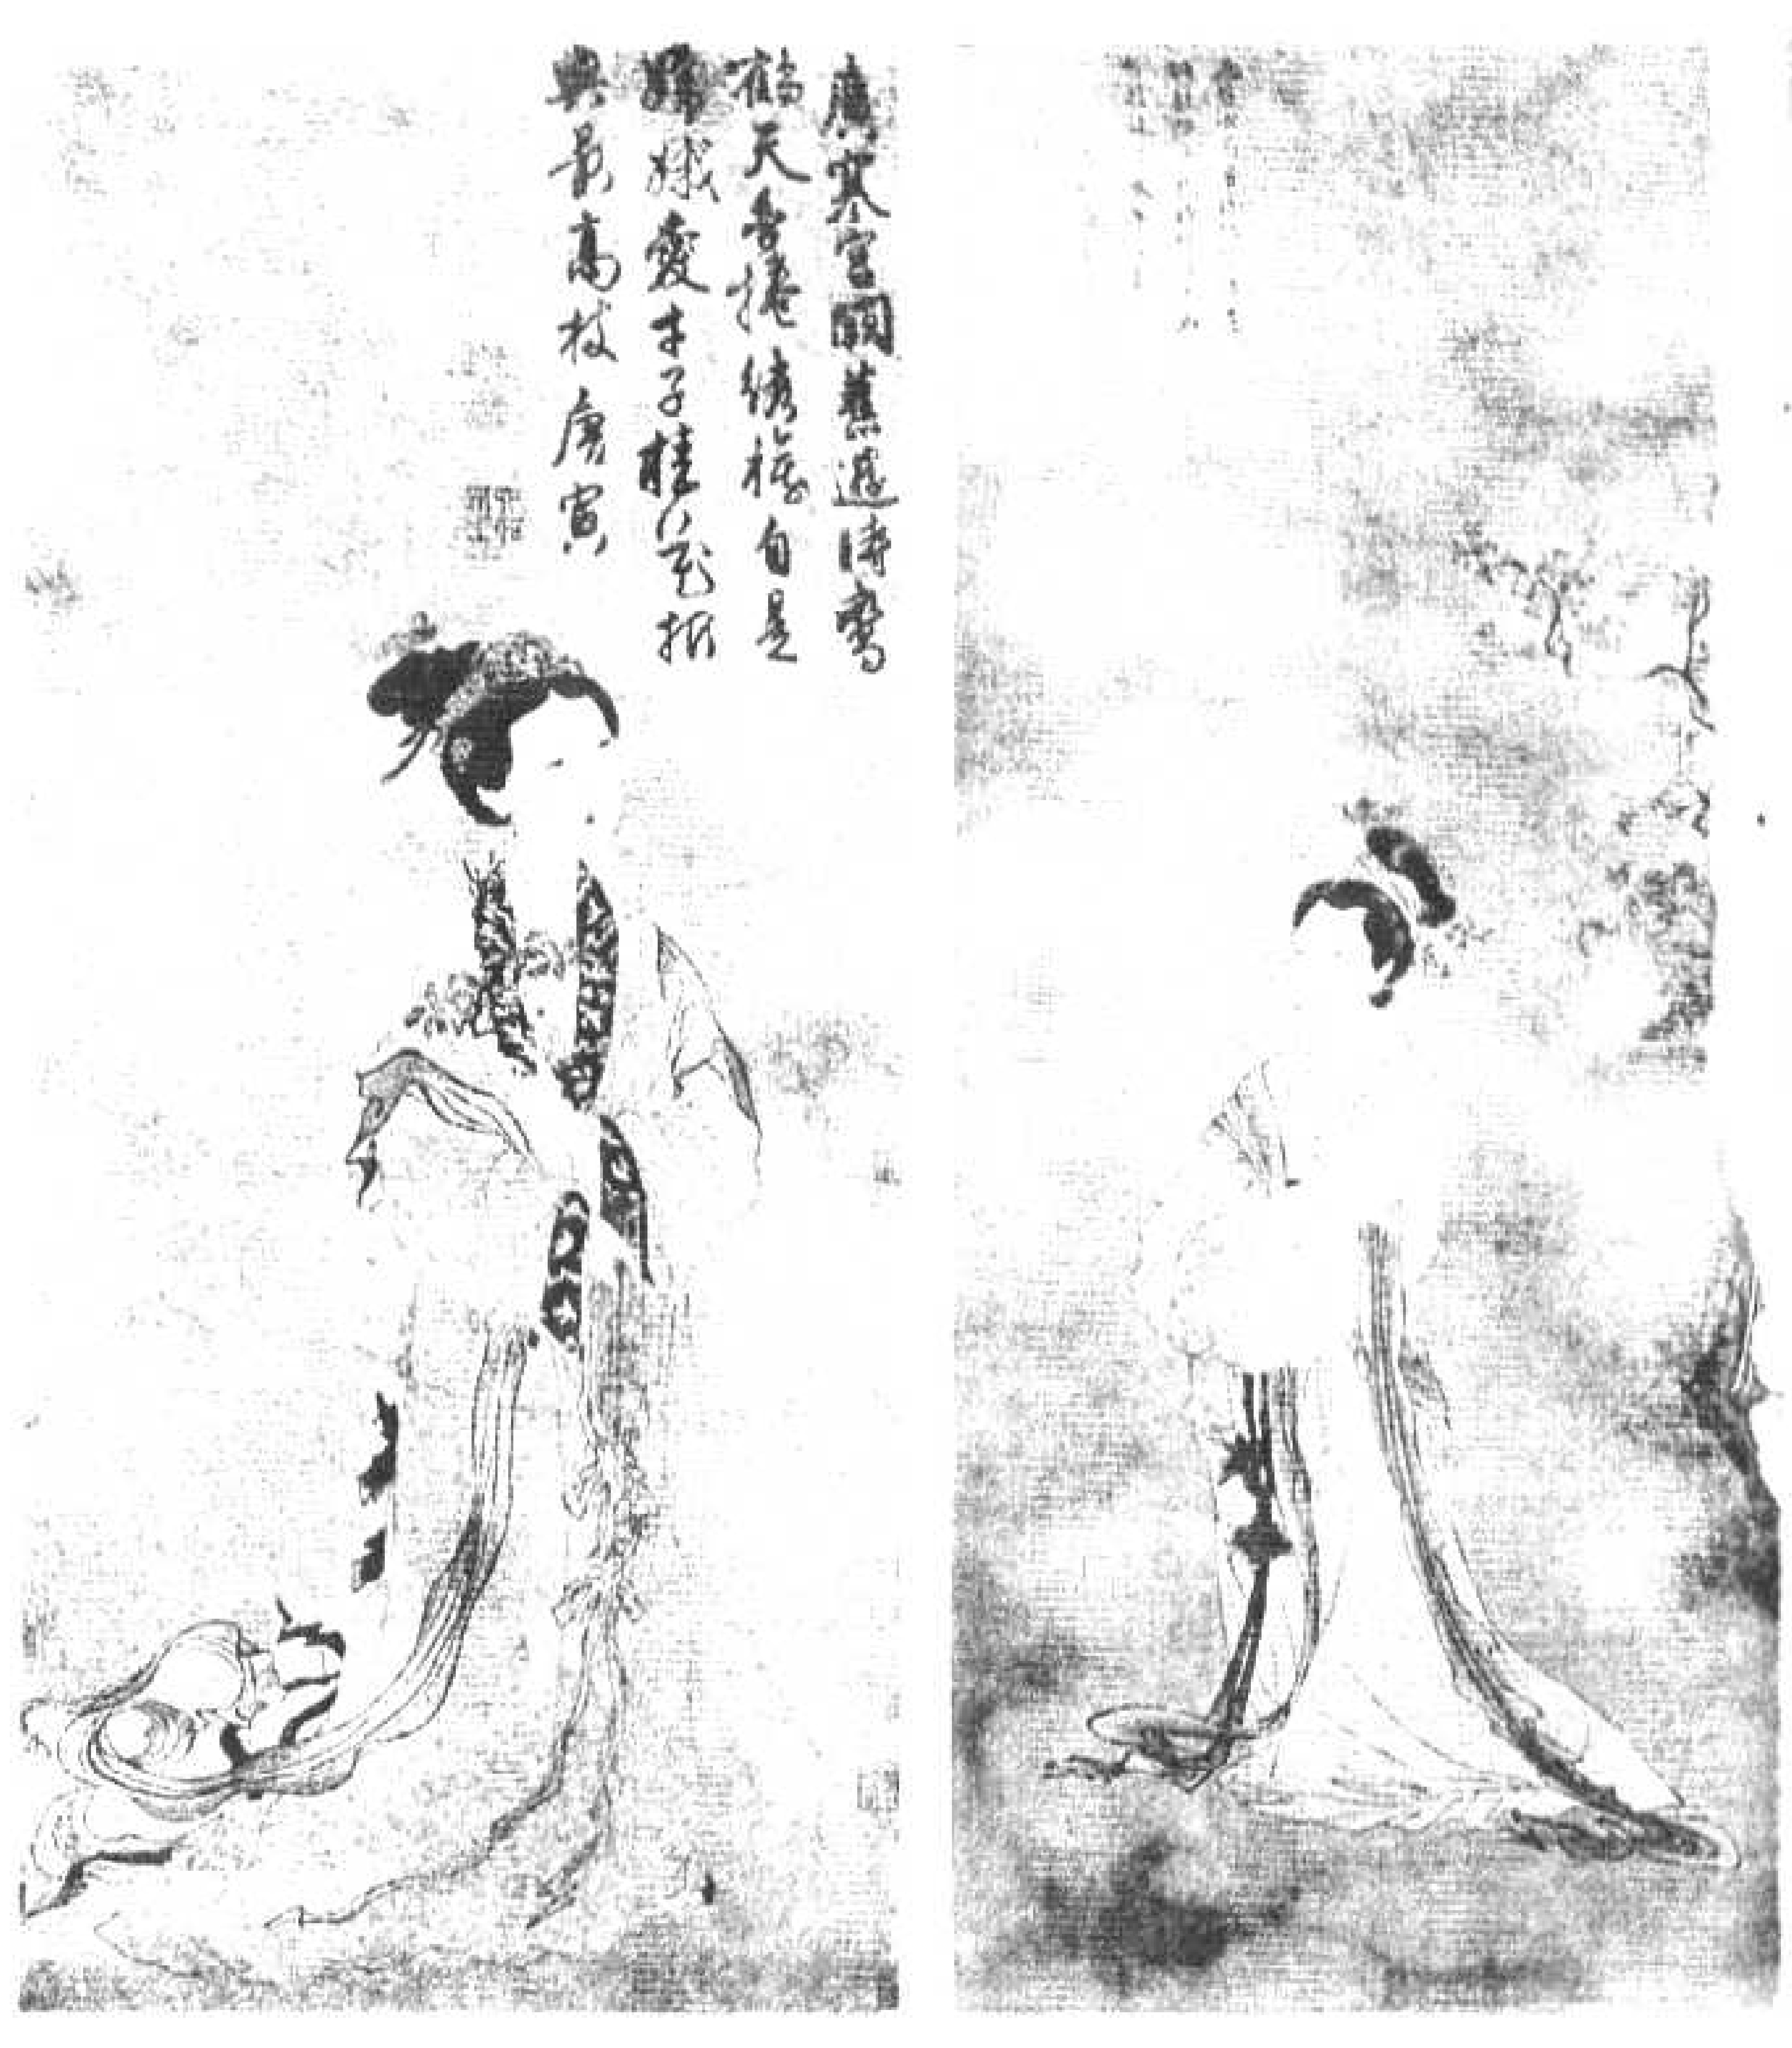 廣寒宮闕舊遊時鸞
鶴天香捲繡旗自是
嫦娥愛才子桂花折
與最高枝唐寅